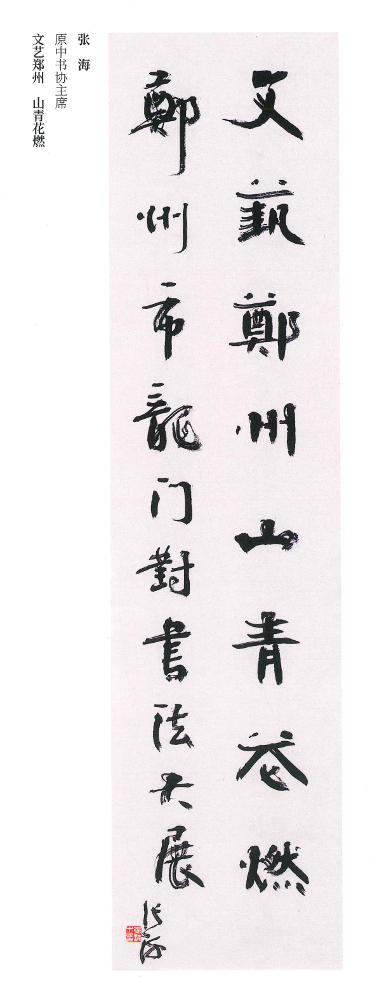 文藝鄭州山青花燃
鄭州市龍门對書法大展
张海
张 海
原中书协主席
文艺郑州 山青花燃